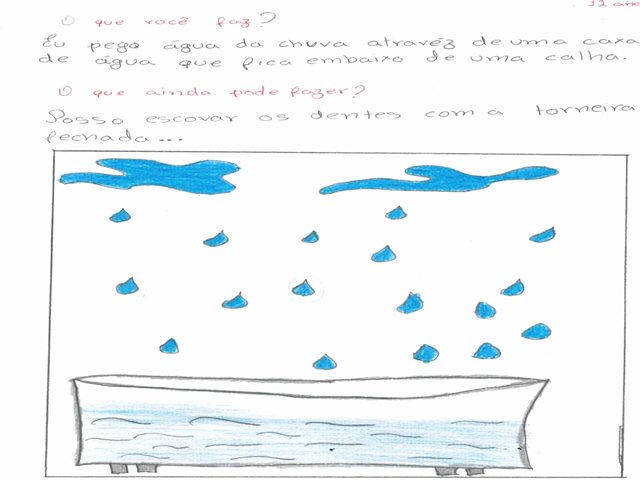 12 ano
O que você faz?
Eu pego água da chuva atravéz de uma caxa
de água que fica embaixo de uma calha.
O que ainda pode fazer?
Posso escovar os dentes com a torneira
fechada...